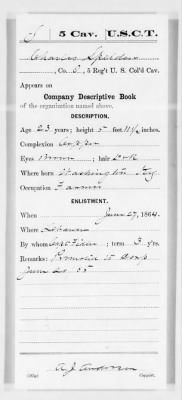 S | 5 Cav. | U.S.C.T.
Charles
, Co. , 5 Reg't U. S. Col'd Cav.
Appears on
Company Descriptive Book
of the organization named above.
DESCRIPTION.
Age 23 years; height 5 feet 11½ inches.
Complexion Copper
Eyes Brown ; hair Dark
Where born Washington Ky.
Occupation Farmer
ENLISTMENT.
When June 27, 1864.
Where Lebanon
By whom Capt Fidler ; term 3 yrs.
Remarks: Promoted to Corp
A. J. Anderson
Copyist.